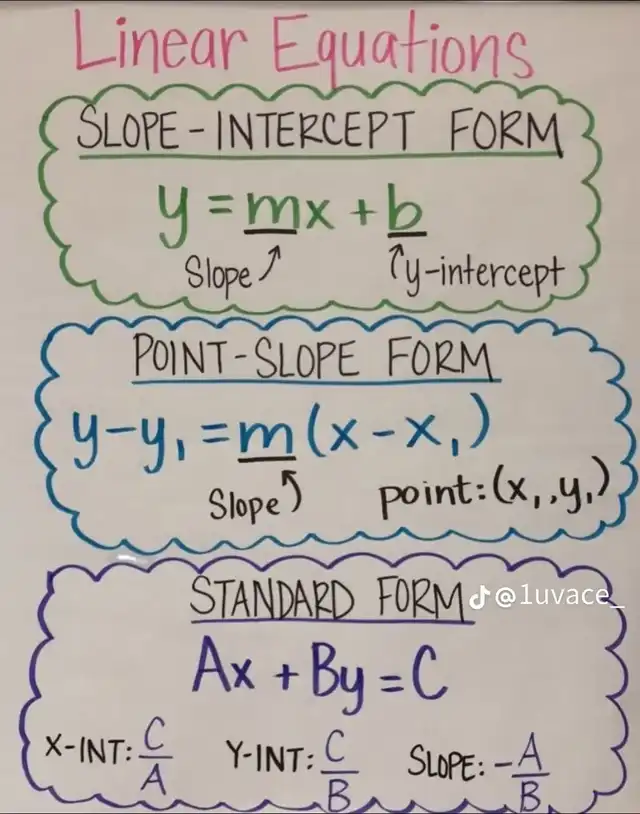 Linear Equations
SLOPE-INTERCEPT FORM
y = mx + b
Slope ↗ ↖ y-intercept
POINT-SLOPE FORM
y-y₁ = m(x-x₁)
Slope ↖ point: (x₁,y₁)
STANDARD FORM @1uvace_
Ax + By = C
X-INT: C/A Y-INT: C/B SLOPE: -A/B